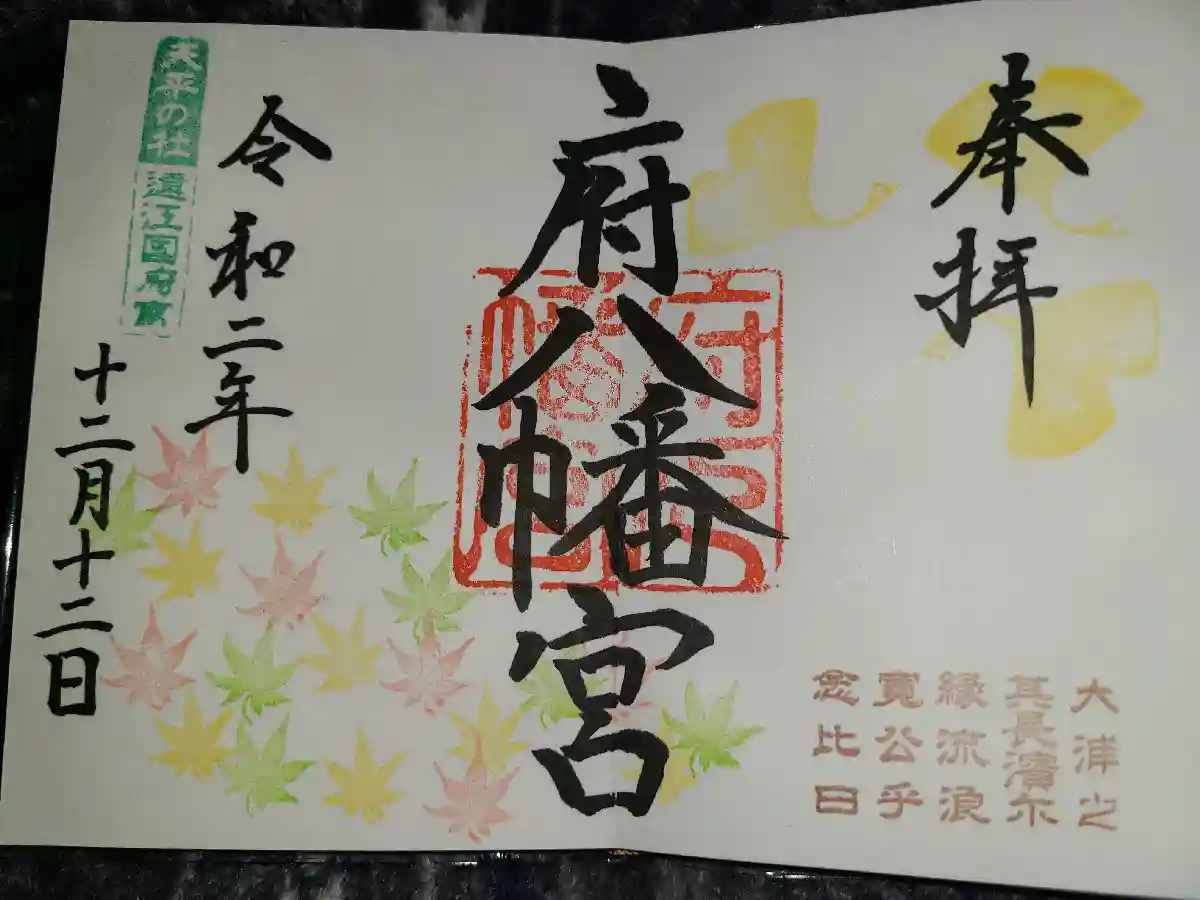 奉拝
大浦之
其長濱尓
縁流浪
寛公乎
念比日
府八幡宮
府八幡宮
令和二年
十二月十二日
天平の社
遠江国府